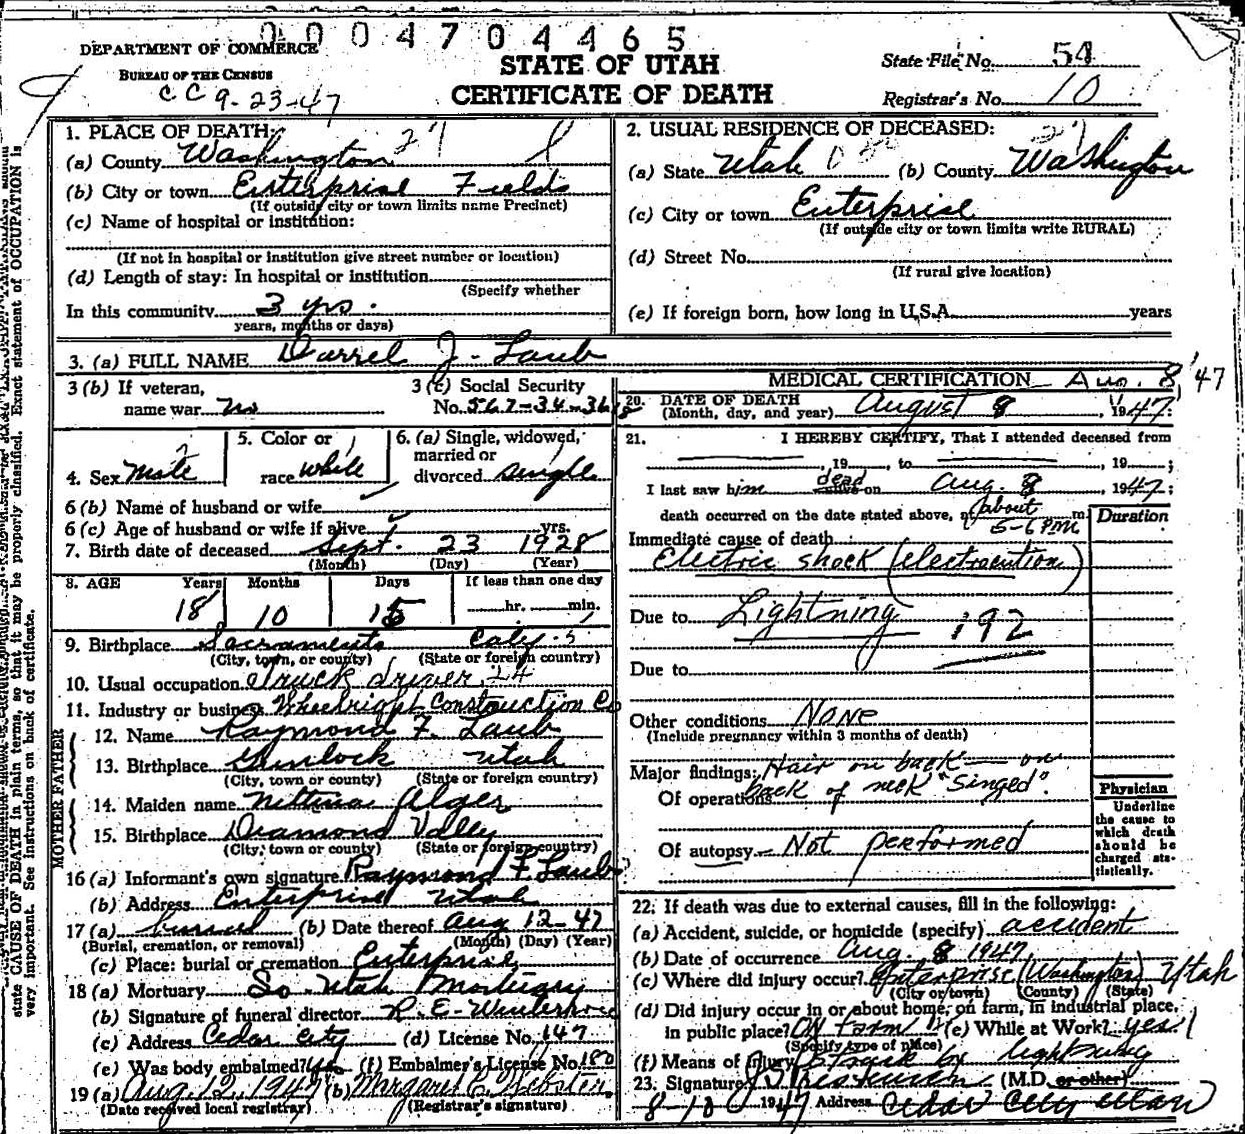 0004704465
DEPARTMENT OF COMMERCE
BUREAU OF THE CENSUS
CC 9-23-47
STATE OF UTAH
CERTIFICATE OF DEATH
State File No. 54
Registrar's No. 10
state CAUSE OF DEATH in plain terms, so that it may be properly classified. Exact statement of OCCUPATION is
very important. See instructions on back of certificate.
1. PLACE OF DEATH:
(a) County Washington 27
(b) City or town Enterprise Fields
(If outside city or town limits name Precinct)
(c) Name of hospital or institution:
(If not in hospital or institution give street number or location)
(d) Length of stay: In hospital or institution
(Specify whether
In this community 3 yrs.
years, months or days)
2. USUAL RESIDENCE OF DECEASED:
(a) State Utah (b) County Washington
(c) City or town Enterprise
(If outside city or town limits write RURAL)
(d) Street No.
(If rural give location)
(e) If foreign born, how long in U.S.A. years
3. (a) FULL NAME Darrel J. Laub
3 (b) If veteran,
name war no
3 (c) Social Security
No. 567-34-3618
4. Sex Male
5. Color or
race white
6. (a) Single, widowed,
married or
divorced single
6 (b) Name of husband or wife
6 (c) Age of husband or wife if alive yrs.
7. Birth date of deceased Sept. 23 1928
(Month) (Day) (Year)
8. AGE Years Months Days If less than one day
18 10 15 hr. min.
9. Birthplace Sacramento Calif.
(City, town, or county) (State or foreign country)
10. Usual occupation truck driver 24
11. Industry or business Wheelright Construction Co
FATHER
12. Name Raymond F. Laub
13. Birthplace Gunlock Utah
(City, town or county) (State or foreign country)
MOTHER
14. Maiden name Alger
15. Birthplace Diamond Valley
(City, town or county) (State or foreign country)
16 (a) Informant's own signature Raymond F Laub
(b) Address Enterprise Utah
17 (a) burial (b) Date thereof Aug 12-47
(Burial, cremation, or removal) (Month) (Day) (Year)
(c) Place: burial or cremation Enterprise
18 (a) Mortuary So. Utah Mortuary
(b) Signature of funeral director R. E.
(c) Address Cedar City (d) License No. 147
(e) Was body embalmed? Yes (f) Embalmer's License No. 180
19 (a) Aug. 12, 1947 (b) Margaret E. Webster
(Date received local registrar) (Registrar's signature)
MEDICAL CERTIFICATION Aug. 8, '47
20. DATE OF DEATH
(Month, day, and year) August 8, 1947
21. I HEREBY CERTIFY, That I attended deceased from
, 19 , to , 19 ;
I last saw him dead alive on Aug. 8, 1947;
death occurred on the date stated above, at about 5-6 PM m.
Duration
Immediate cause of death
Electric shock (electrocution)
Due to Lightning 192
Due to
Other conditions None
(Include pregnancy within 3 months of death)
Major findings: Hair on back — on
Of operations back of neck "Singed".
Of autopsy Not performed
Physician
Underline
the cause to
which death
should be
charged sta-
tistically.
22. If death was due to external causes, fill in the following:
(a) Accident, suicide, or homicide (specify) accident
(b) Date of occurrence Aug. 8 1947
(c) Where did injury occur? Enterprise (Washington) Utah
(City or town) (County) (State)
(d) Did injury occur in or about home, on farm, in industrial place,
in public place? ON farm (e) While at Work? yes
(Specify type of place)
(f) Means of injury Struck by lightning
23. Signature (M.D. or other)
8-10 1947 Address Cedar City Utah